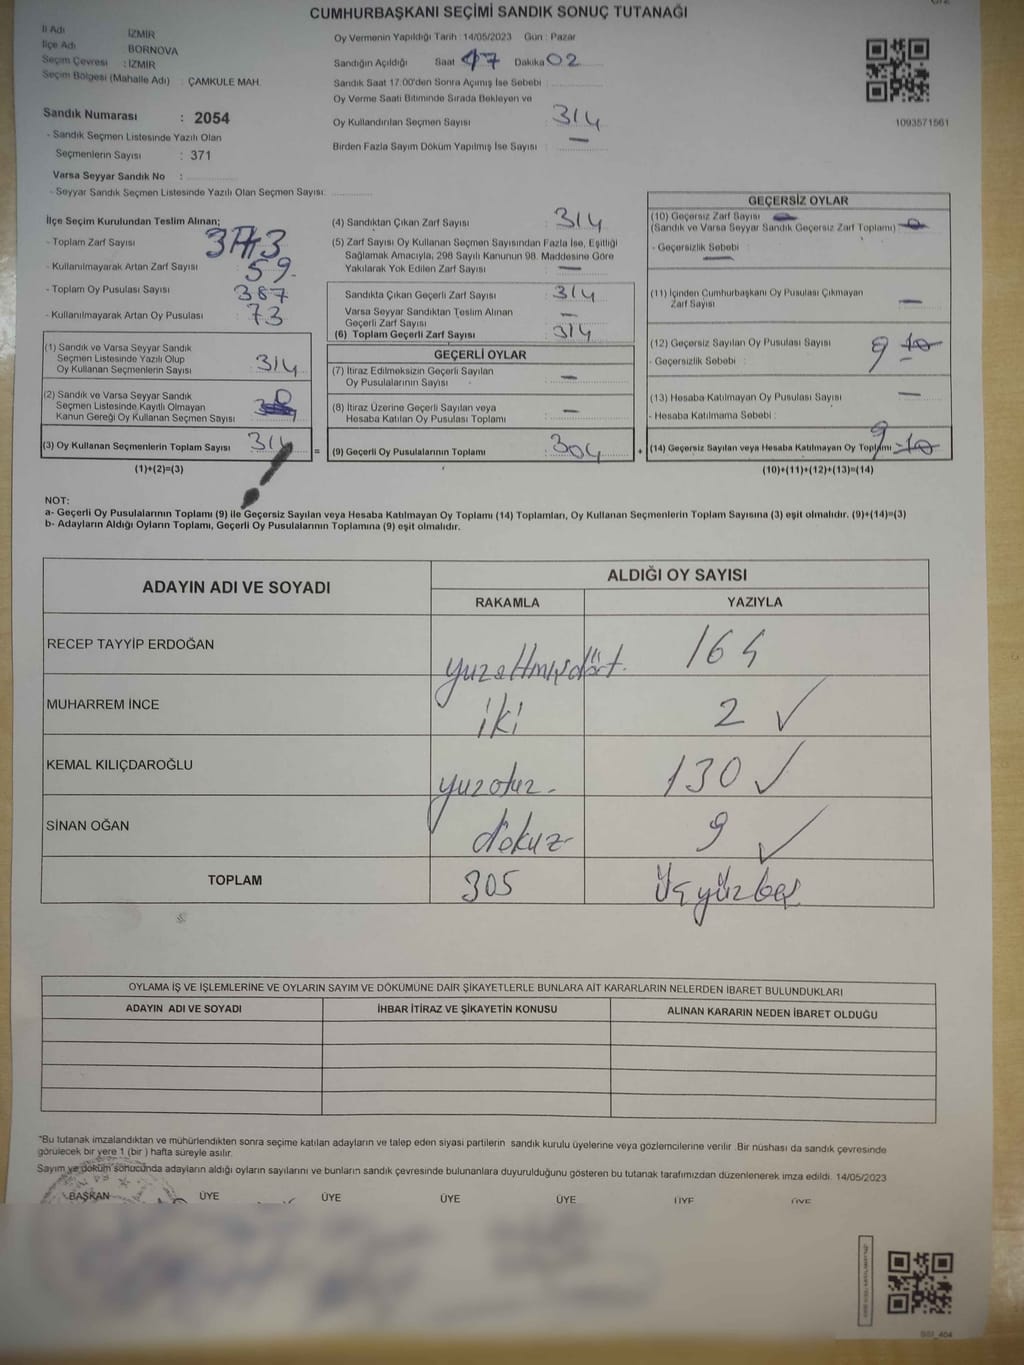 CUMHURBAŞKANI SEÇİMİ SANDIK SONUÇ TUTANAĞI
İl Adı İZMİR
İlçe Adı BORNOVA
Seçim Çevresi : İZMİR
Seçim Bölgesi (Mahalle Adı) : ÇAMKULE MAH.
Sandık Numarası : 2054
- Sandık Seçmen Listesinde Yazılı Olan
Seçmenlerin Sayısı : 371
Varsa Seyyar Sandık No :
- Seyyar Sandık Seçmen Listesinde Yazılı Olan Seçmen Sayısı:
Oy Vermenin Yapıldığı Tarih : 14/05/2023 Gün : Pazar
Sandığın Açıldığı Saat 17 Dakika 02
Sandık Saat 17.00'den Sonra Açımış İse Sebebi
Oy Verme Saati Bitiminde Sırada Bekleyen ve
Oy Kullandırılan Seçmen Sayısı 314
Birden Fazla Sayım Döküm Yapılmış İse Sayısı : —
1093571561
İlçe Seçim Kurulundan Teslim Alınan;
- Toplam Zarf Sayısı
- Kullanılmayarak Artan Zarf Sayısı : 59.
- Toplam Oy Pusulası Sayısı : 387
- Kullanılmayarak Artan Oy Pusulası : 73
(1) Sandık ve Varsa Seyyar Sandık
Seçmen Listesinde Yazılı Olup
Oy Kullanan Seçmenlerin Sayısı 314
(2) Sandık ve Varsa Seyyar Sandık
Seçmen Listesinde Kayıtlı Olmayan
Kanun Gereği Oy Kullanan Seçmen Sayısı
(3) Oy Kullanan Seçmenlerin Toplam Sayısı 314
(1)+(2)=(3)
(4) Sandıktan Çıkan Zarf Sayısı 314
(5) Zarf Sayısı Oy Kullanan Seçmen Sayısından Fazla İse, Eşitliği
Sağlamak Amacıyla; 298 Sayılı Kanunun 98. Maddesine Göre
Yakılarak Yok Edilen Zarf Sayısı —
Sandıkta Çıkan Geçerli Zarf Sayısı : 314
Varsa Seyyar Sandıktan Teslim Alınan
Geçerli Zarf Sayısı —
(6) Toplam Geçerli Zarf Sayısı 314
GEÇERLİ OYLAR
(7) İtiraz Edilmeksizin Geçerli Sayılan
Oy Pusulalarının Sayısı —
(8) İtiraz Üzerine Geçerli Sayılan veya
Hesaba Katılan Oy Pusulası Toplamı —
(9) Geçerli Oy Pusulalarının Toplamı : 304
=
+
GEÇERSİZ OYLAR
(10) Geçersiz Zarf Sayısı
(Sandık ve Varsa Seyyar Sandık Geçersiz Zarf Toplamı)
- Geçersizlik Sebebi :
(11) İçinden Cumhurbaşkanı Oy Pusulası Çıkmayan
Zarf Sayısı —
(12) Geçersiz Sayılan Oy Pusulası Sayısı 9 10
- Geçersizlik Sebebi :
(13) Hesaba Katılmayan Oy Pusulası Sayısı —
- Hesaba Katılmama Sebebi :
(14) Geçersiz Sayılan veya Hesaba Katılmayan Oy Toplamı 9 10
(10)+(11)+(12)+(13)=(14)
NOT:
a- Geçerli Oy Pusulalarının Toplamı (9) ile Geçersiz Sayılan veya Hesaba Katılmayan Oy Toplamı (14) Toplamları, Oy Kullanan Seçmenlerin Toplam Sayısına (3) eşit olmalıdır. (9)+(14)=(3)
b- Adayların Aldığı Oyların Toplamı, Geçerli Oy Pusulalarının Toplamına (9) eşit olmalıdır.
ADAYIN ADI VE SOYADI ALDIĞI OY SAYISI
RAKAMLA YAZIYLA
RECEP TAYYİP ERDOĞAN yuzaltmışdört. 164
MUHARREM İNCE iki 2 ✓
KEMAL KILIÇDAROĞLU yuzotuz- 130 ✓
SİNAN OĞAN dokuz- 9 ✓
TOPLAM 305 Üçyüzbeş
OYLAMA İŞ VE İŞLEMLERİNE VE OYLARIN SAYIM VE DÖKÜMÜNE DAİR ŞİKAYETLERLE BUNLARA AİT KARARLARIN NELERDEN İBARET BULUNDUKLARI
ADAYIN ADI VE SOYADI İHBAR İTİRAZ VE ŞİKAYETİN KONUSU ALINAN KARARIN NEDEN İBARET OLDUĞU
"Bu tutanak imzalandıktan ve mühürlendikten sonra seçime katılan adayların ve talep eden siyasi partilerin sandık kurulu üyelerine veya gözlemcilerine verilir .Bir nüshası da sandık çevresinde
görülecek bir yere 1 (bir ) hafta süreyle asılır.
Sayım ve döküm sonucunda adayların aldığı oyların sayılarını ve bunların sandık çevresinde bulunanlara duyurulduğunu gösteren bu tutanak tarafımızdan düzenlenerek imza edildi. 14/05/2023
BAŞKAN ÜYE ÜYE ÜYE ÜYE ÜYE ÜYE